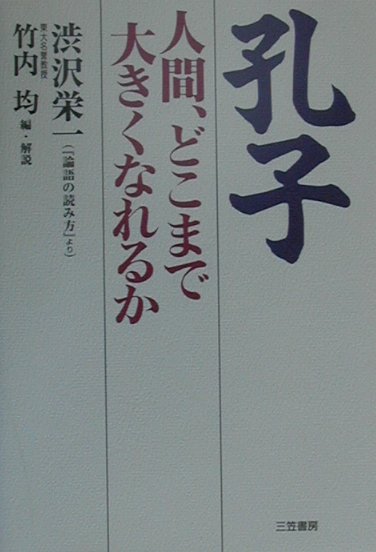 孔子
人間、どこまで
大きくなれるか
渋沢栄一
(「論語の読み方」より)
東大名誉教授
竹内 均 編・解説
三笠書房